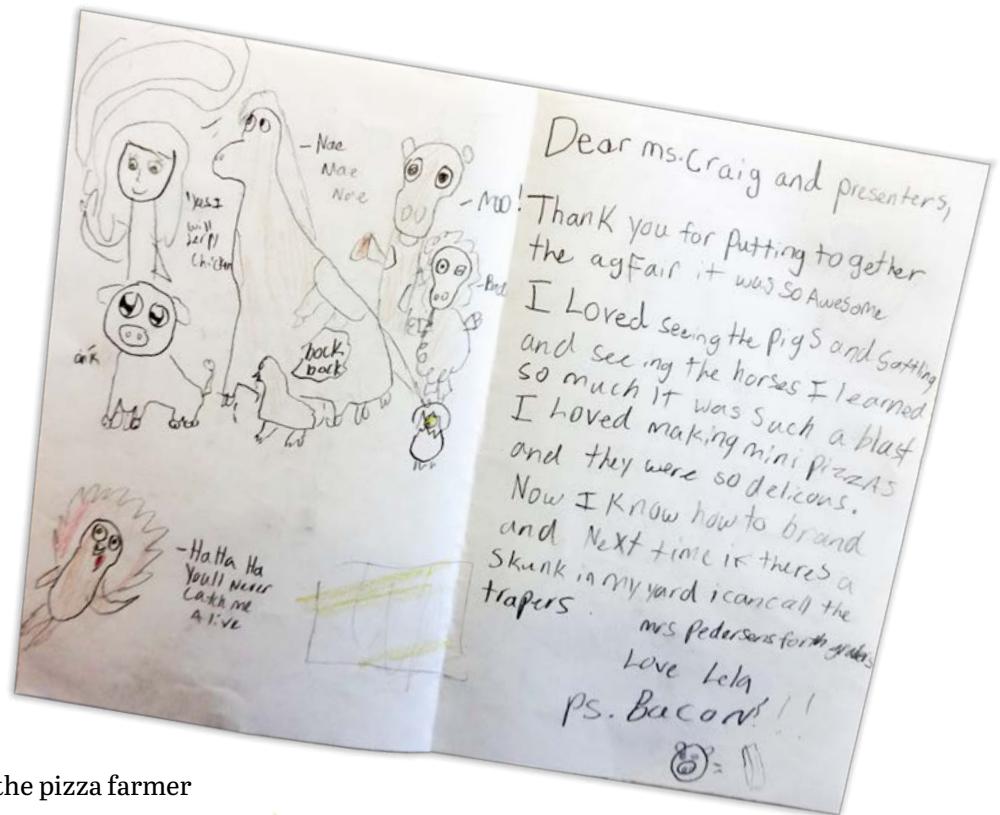 Nae
Mae
Noe
"Yas I
will
Chicken
MOO!
oink
bock
bock
-HaHa Ha
Youll Never
Catch me
Alive
Dear ms. Craig and presenters,
Thank you for Putting together
the agfair it was so Awesome
I Loved seeing the pigs and
and seeing the horses I learned
so much It was such a blast
I Loved making mini pizzAs
and they were so delicous.
Now I Know how to brand
and Next time if theres a
skunk in my yard i can call the
trapers
mrs Pedersens forth graders
Love Lela
Ps. Bacon!!!
the pizza farmer